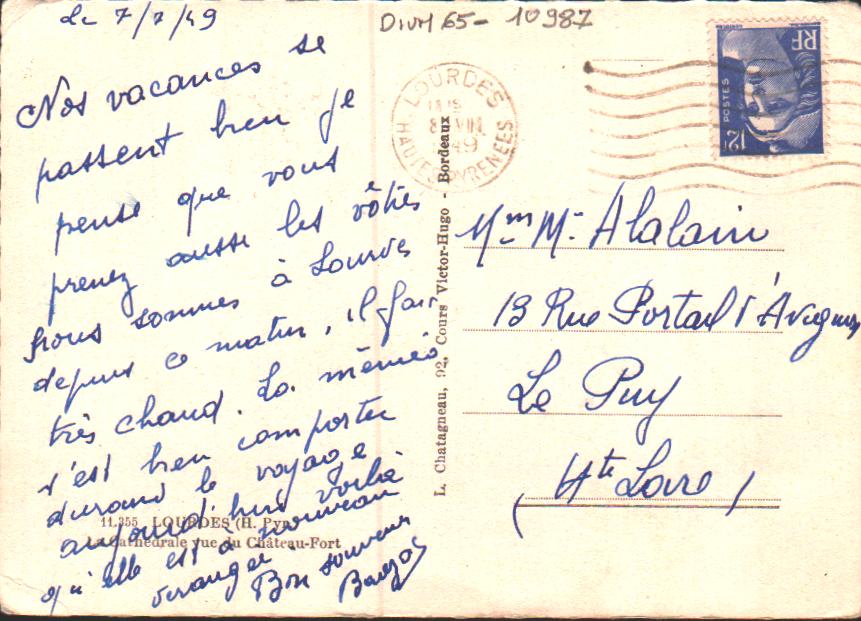 Le 7/7/49
DIVM 65 - 10987
Nos vacances se
passent bien je
pense que vous
prenez aussi les vôtres
nous sommes à Lourdes
depuis ce matin, il fait
très chaud. La mémée
s'est bien comporter
durand le voyage
aujourd'hui voilà
qu'elle est à nouveau
Bon souvenir
11.355 LOURDES (H. Pyr.)
La Cathédrale vue du Château-Fort
L. Chatagneau, 92, Cours Victor-Hugo - Bordeaux
LOURDES
HAUTES PYRENEES
49
RF
POSTES
12F
Mme Mr Alalain
13 Rue Portail d'Avignon
Le Puy
(Hte Loire)